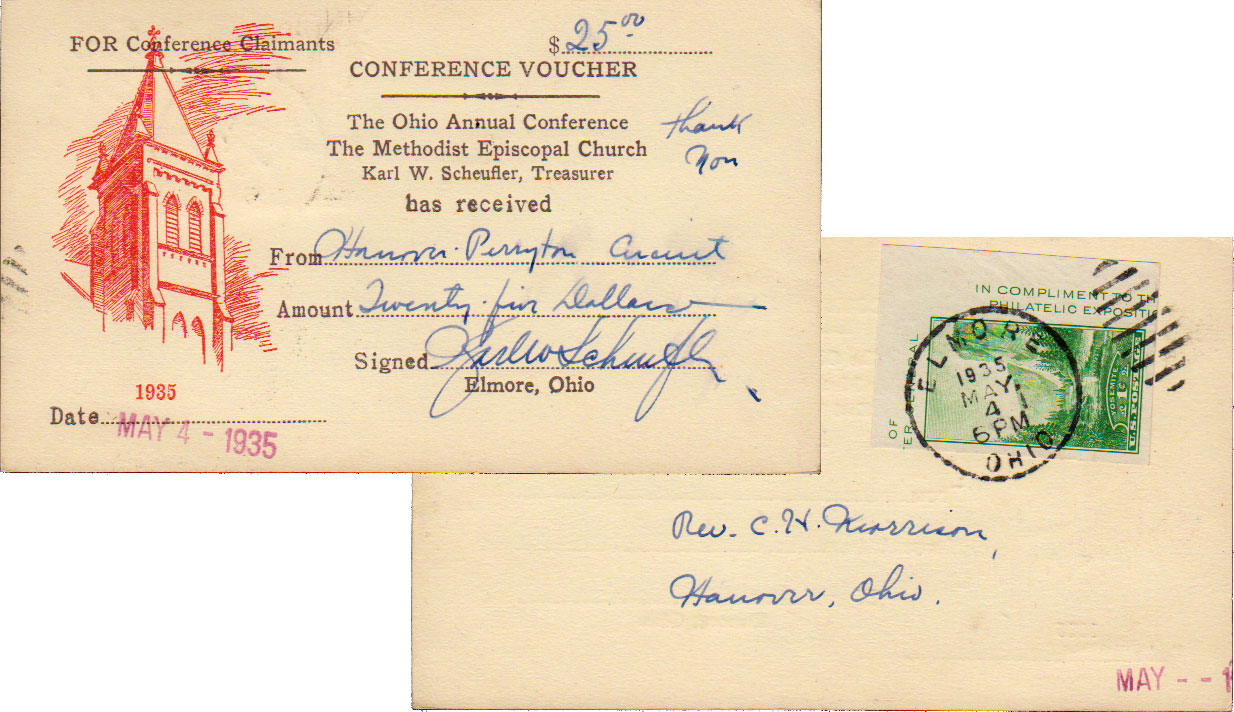 FOR Conference Claimants
$ 25.00
CONFERENCE VOUCHER
The Ohio Annual Conference
The Methodist Episcopal Church
Karl W. Scheufler, Treasurer
has received
Thank
You
From Hanover-Perryton Circuit
Amount Twenty-five Dollars
Signed Karl W Scheufler
Elmore, Ohio
1935
Date MAY 4 - 1935
IN COMPLIMENT TO TH
PHILATELIC EXPOSITI
OF
ER
YOSEMITE
1¢
U.S. POSTAGE
ELMORE
1935
MAY
4
6 PM
OHIO
Rev. C. H. Morrison,
Hanover, Ohio.
MAY - - 1